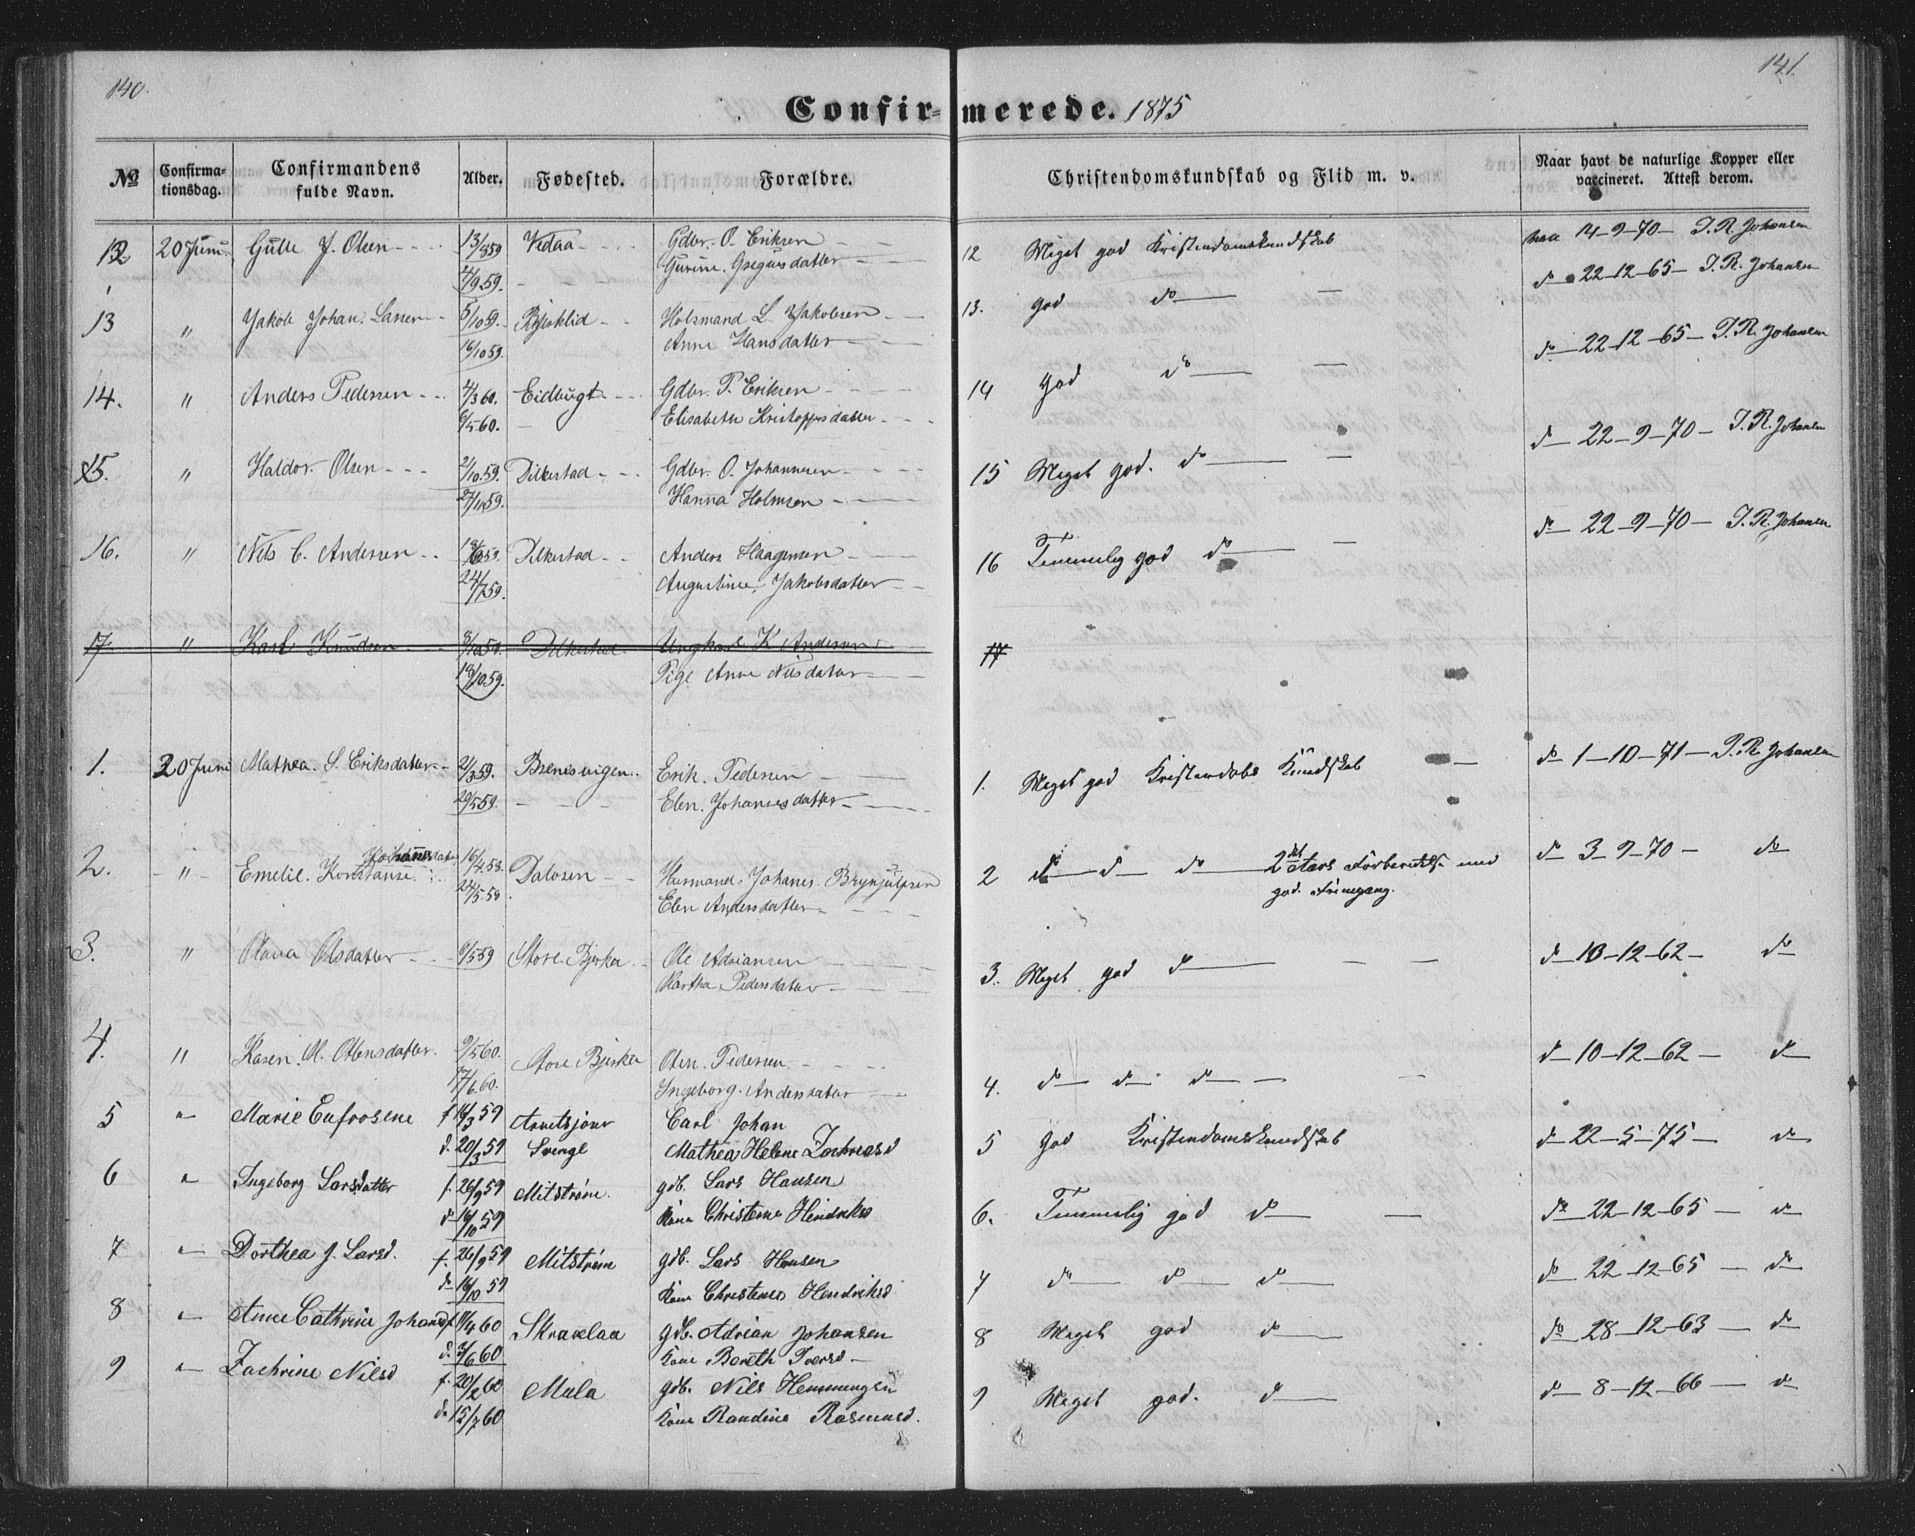 140.
141.
Confirmerede. 1875
No
Confirmationsdag.
Confirmandens fulde Navn.
Alder.
Fødested.
Forældre.
Christendomskundskab og Flid m. v.
Naar havt de naturlige Kopper eller vaccineret. Attest derom.
12 20 Juni Gulle J. Olsen 13/8 59 Vedaa Gdbr. O. Eriksen 12 Meget god Kristendomskundskab vac 14-9-70 - I. R. Johansen
4/9 59. Gurine Gregusdatter
13 " Jakob Johan. Larsen 5/10 59. Bjørklid Holsmand L. Jakobsen 13. god do do 22-12-65 - I. R. Johansen
16/10 59. Anne Hansdatter
14. " Anders Pedersen 4/3 60. Eidbugt Gdbr. P. Eriksen 14 god do do 22-12-65 - I. R. Johansen
6/5 60. Elisabeth Kristoffersdatter
15. " Haldor Olsen 2/10 59. Dilkestad Gdbr. O. Johannesen 15 Meget god. do do 22-9-70 - I. R. Johansen
27/11 59. Hanna Holmsen
16. " Nils C. Andersen 59. Dilkestad Anders Haagensen 16 Temmelig god do do 22-9-70 - I. R. Johansen
24/7 59. Augustine Jakobsdatter
17. " Karl Knudsen 8/10 59. Dilkestad Ungkarl K. Andersen 17
18/10 59. Pige Anne Nilsdatter
1. 20 Juni Mathea. S. Eriksdatter 21/3 59. Brenesvigen Erik. Pedersen 1. Meget god Kundskab do 1-10-71 - I. R. Johansen
29/5 59. Elen. Johannesdatter
2. " Emelie. Konstanse Johannesdatter 16/4 58. Dalosen Huusmand. Johanes. Brynjulfsen 2 do do do 2det Aars Forberedelse med do 3-9-70 - do
24/5 58. Elen Andersdatter god Fremgang.
3. " Olava Olsdatter 6/5 59 Store Bjerka Ole Adriansen 3. Meget god do do 10-12-62 - do
Martha Pedersdatter
4. " Karen. M. Otensdatter. 9/5 60. Store Bjerka Oten. Pedersen 4. do do do do 10-12-62 - do
17/6 60. Ingeborg. Andersdatter
5 " Marie Eufrosene f 14/3 59 Carl Johan 5 god Kristendomskundskab do 22-5-75 - do
d. 20/3 59 Svengl Mathea Helene Zachriasd
6 " Ingeborg Larsdatter f. 26/9 59 Mitstrøm. gdb. Lars Hansen 6. Temmelig god do do 22-12-65 - do
d 16/10 59 Kone Christense Hendriksd
7 " Dorthea J. Larsd. f. 26/9 59 Mitstrøm gdb. Lars Hansen 7 do do do do 22-12-65 - do
d. 16/10 59 Kone Christense Hendriksd
8 " Anne Cathrine Johansd f 11/4 60 Skravlaa gdb. Adrian Johansen 8 Meget god do do 28-12-63 - do
d. 3/6 60 Kone Bereth Iversd
9 " Zachrine Nilsd f. 20/2 60 Mula gdb. Nils Hemmingsen 9 Meget god. do do 8-12-66 - do
d 15/7 60 Kone Randine Rasmusd.